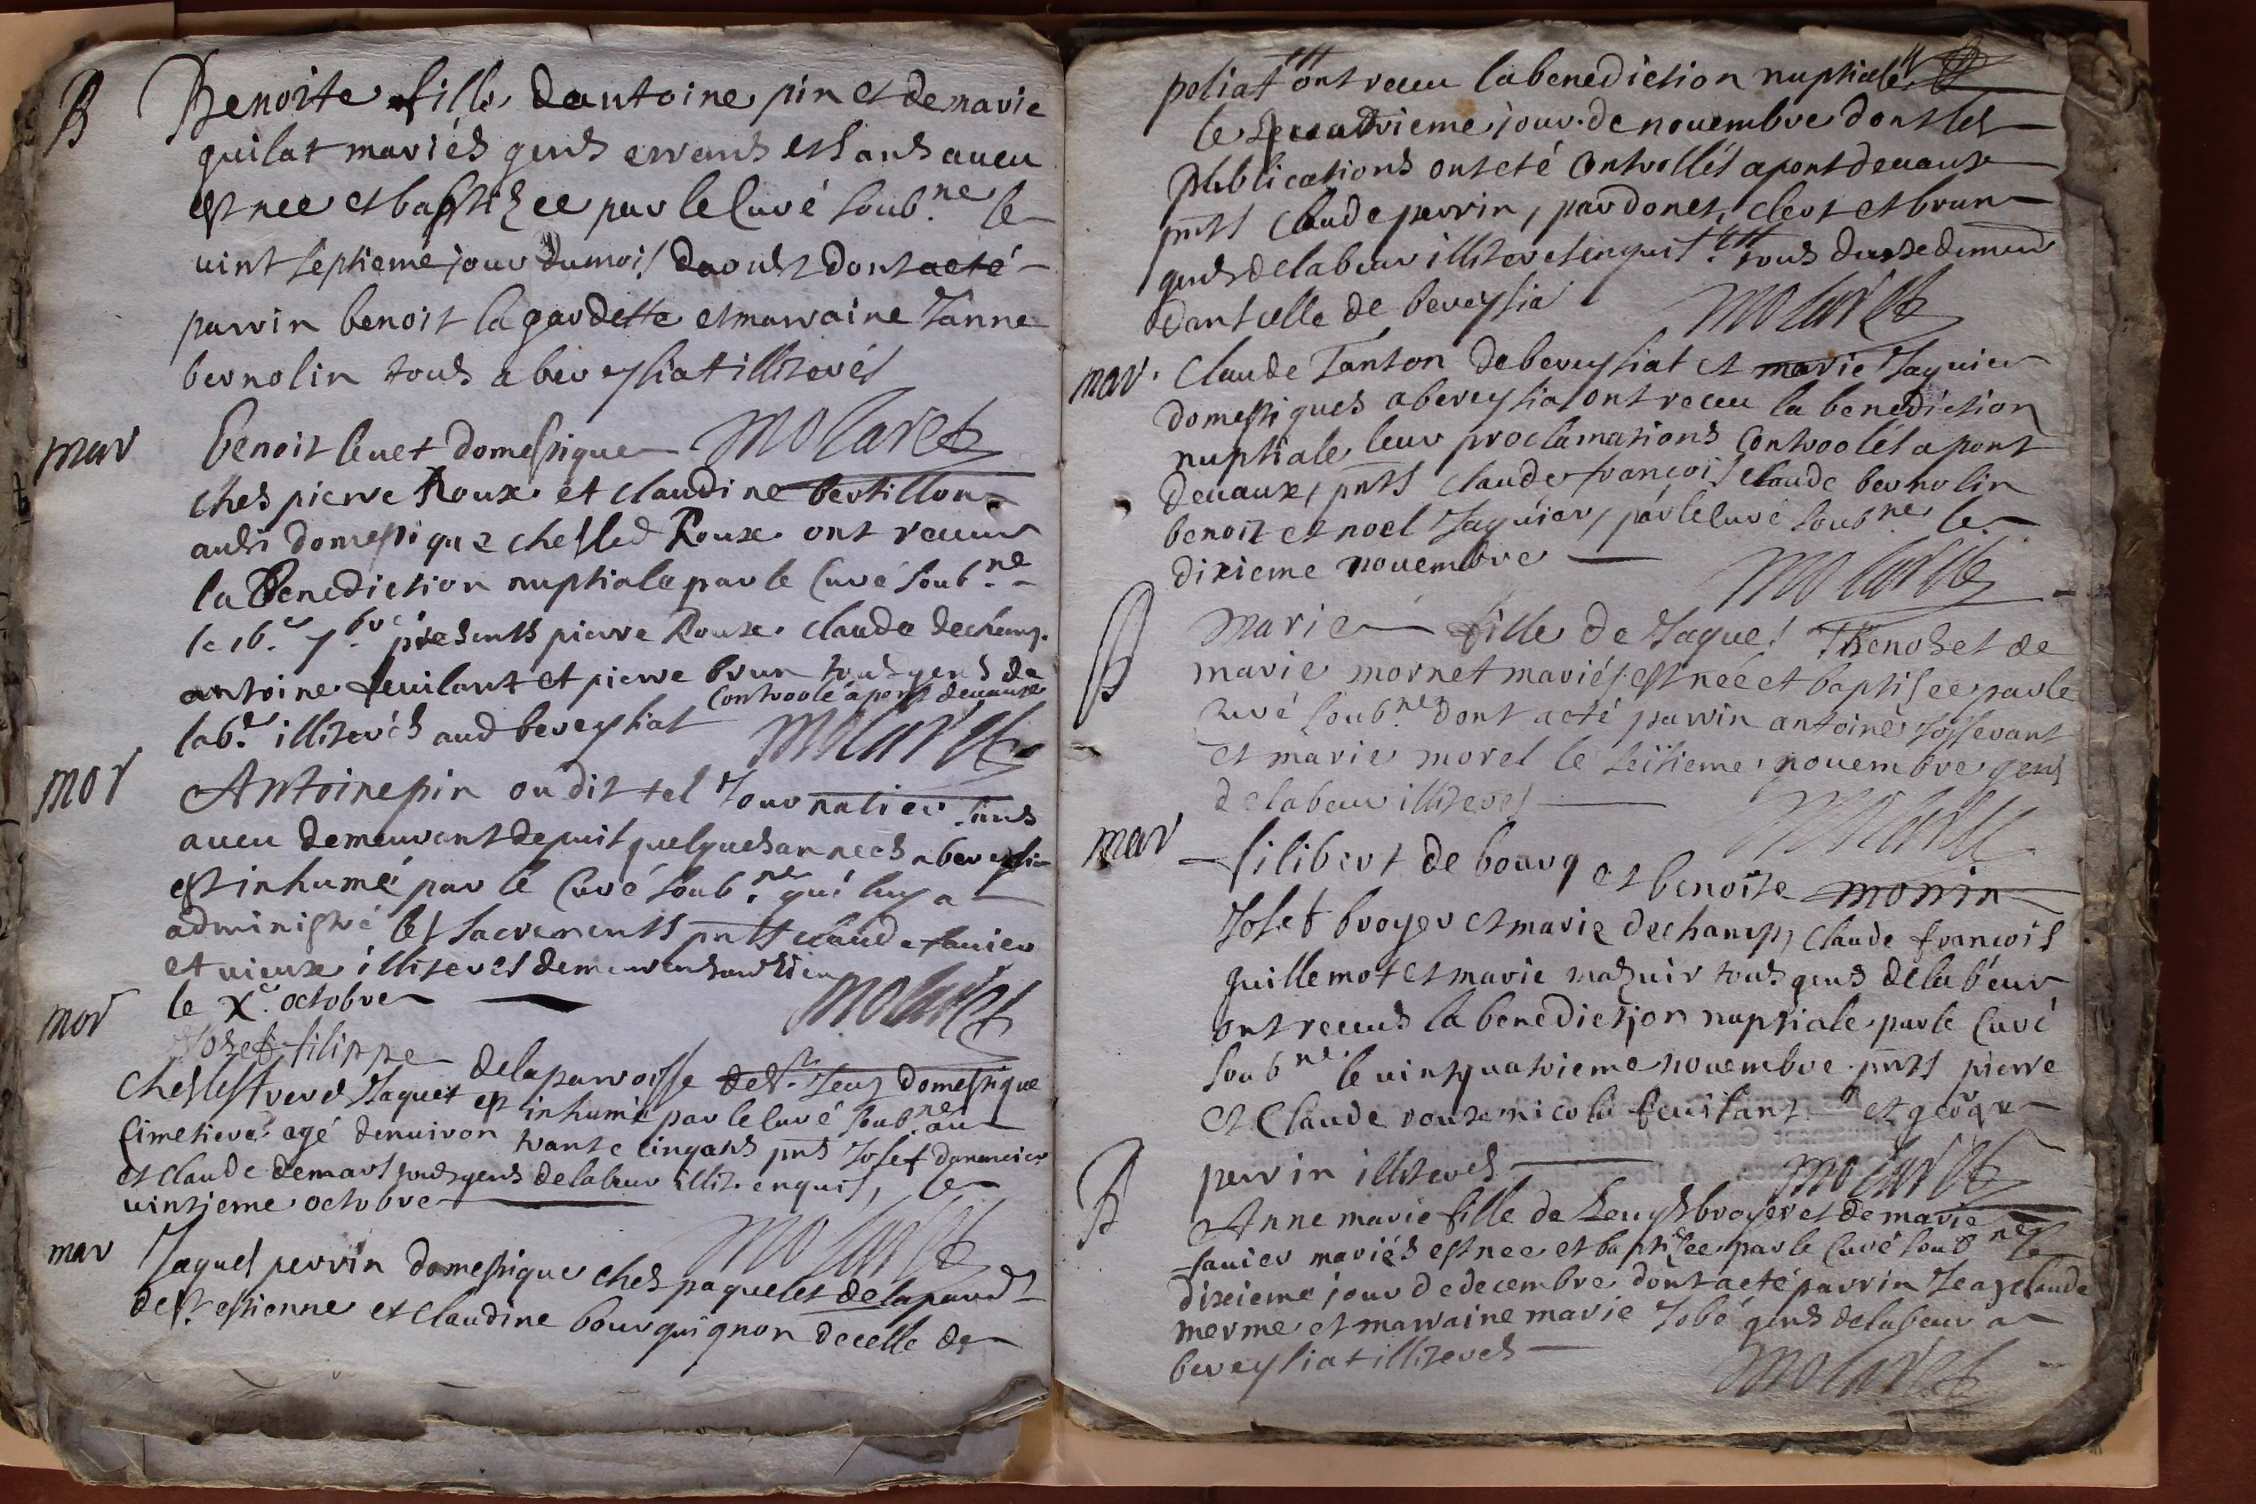 B
Benoite fille dantoine pin et de marie
guilat mariés gens errans et sans aveu
est nee et baptizee par le curé soub.ne le
vint septieme jour du mois daoust dont acté
parrin benoit lagardette et marraine Janne
bernolin tous a bereysiat illiterés
Molaret
mar
benoit levet domestique
ches pierre Roux et claudine bertillon
aussi domestique chesled Roux ont receus
la Benediction nuptiale par le curé soub.ne
le 16.e 7.bre presents pierre Roux claude dechamp
antoine feuilant et pierre brun tous gens de
controolé a pont devaux
lab.r illiterés aud bereysiat
Molaret
mor
Antoine pin ou dit tel Journalier sans
aveu demeurant depuis quelques annees a bereysia
est inhumé par le curé soub.ne qui luy a
administré les sacrements pnts claude favier
et vieux illiteres
le X.e octobre
Molaret
mor
Josef filippe de la parroisse de st. Jean domestique
ches les freres Jaquet est inhumé par le curé soub.ne au
cimetiere agé denviron trante cinq ans pnts Josef
et claude demars tous gens de labeur illit. enquis, le
vintieme octobre
Molaret
mar
Jaques perrin domestique ches paquelet de la parr
de st. estienne et claudine bourguignon de celle de
poliat ont receu la benediction nuptiale
le quatrieme jour de novembre dont les
publications ont eté controllés a pont devaux
pnts Claude perrin, pardonet, clert et brun
gens de labeur illiteres enquis tous
dans celle de bereysia
Molaret
mar.
Claude Tanton de bereysiat et marie Jaquier
domestiques a bereysia ont receu la benediction
nuptiale leur proclamations controolés a pont
devaux, pnts claude françois claude bernolin
benoit et noel Jaquier, par le curé soub.ne le
dixieme novembre
Molaret
B
Marie fille de Jaques Thenoz et de
marie mornet mariés est née et baptisee par le
curé soub.ne dont acté parrin antoine
et marie morel le seisieme novembre gens
de labeur illiteres
Molaret
mar
filibert de bourg et benoite monin
Josef broyer et marie dechamp, claude françois
guillemot et marie mazuir tous gens de labeur
ont receus la benediction nuptiale par le curé
soub.ne le vint quatrieme novembre pnts pierre
et Claude roux nicolas feuilant et george
perrin illiteres
Molaret
B
Anne marie fille de Louys broyer et de marie
favier mariés est nee et baptizee par le curé soub.ne le
dixieme jour de decembre dont acté parrin Jean claude
merme et marraine marie Jobé gens de labeur a
bereysiat illiteres
Molaret